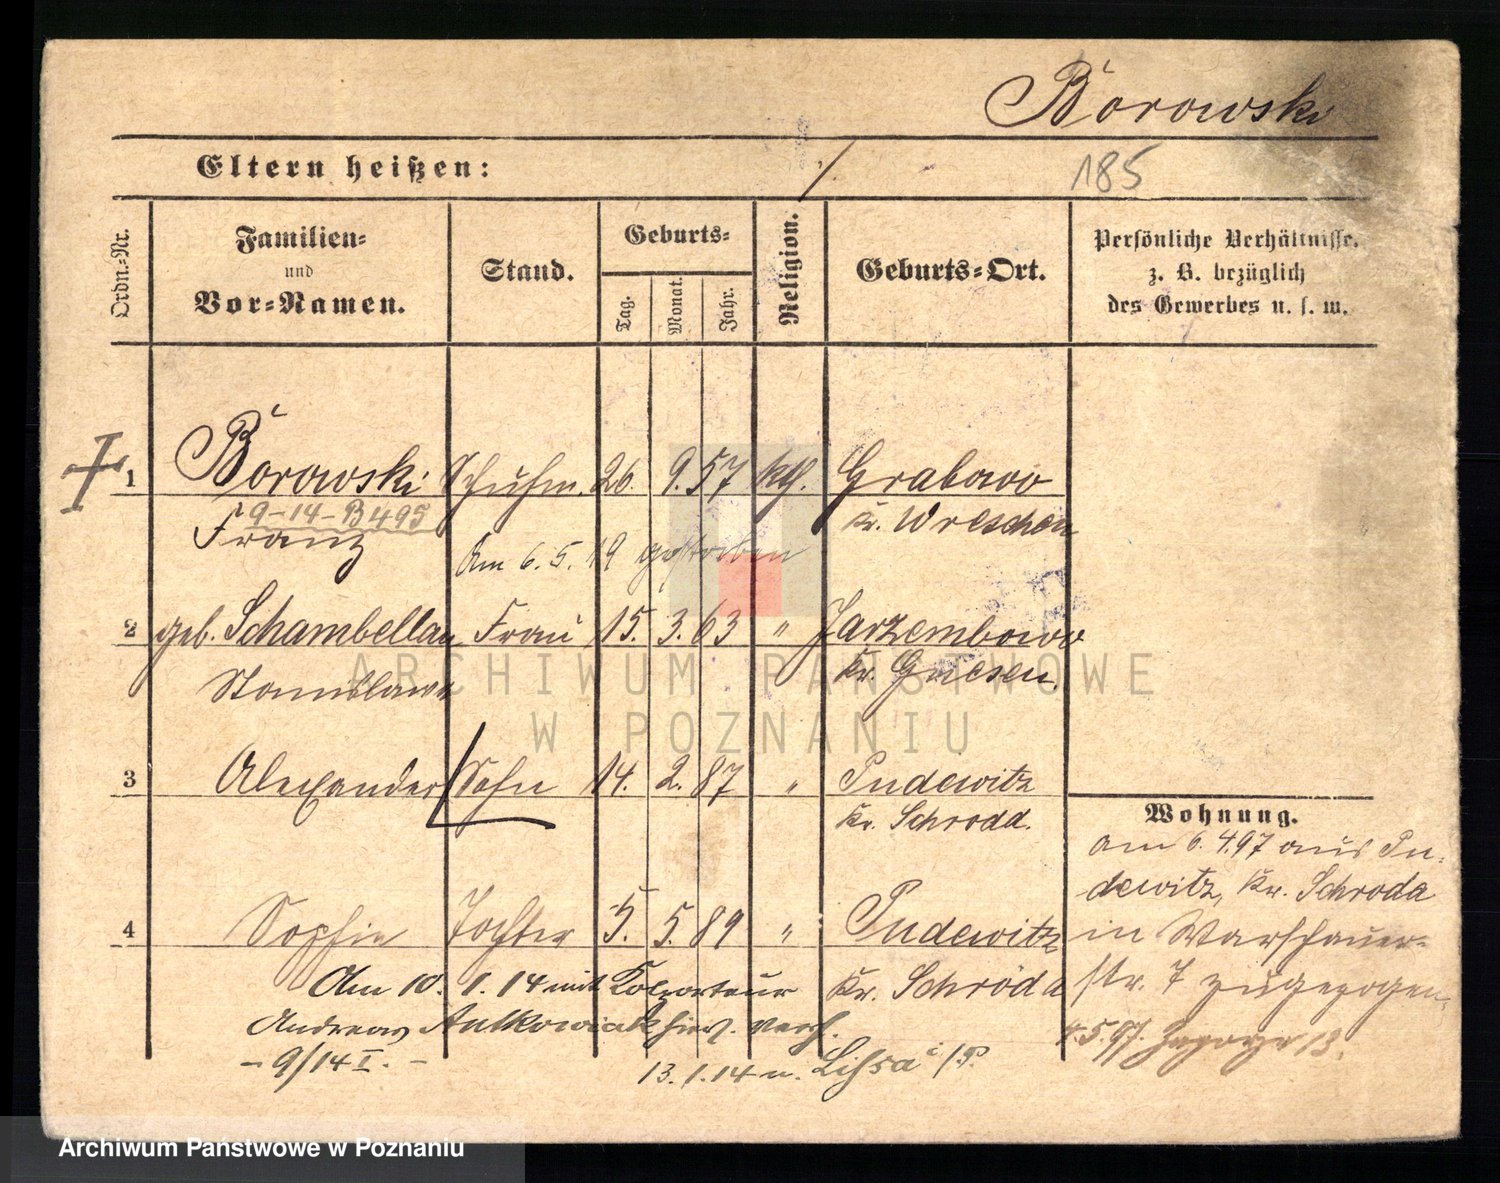 Borowski
Eltern heißen: ·/.
185
Ordn.-Nr.
Familien- und Vor-Namen.
Stand.
Geburts-
Tag. Monat. Jahr.
Religion.
Geburts-Ort.
Persönliche Verhältnisse.
z. B. bezüglich
des Gewerbes u. s. w.
1 Borowski Schuhm. 26. 9. 57 kth. Grabowo
9-14-B495
Franz
Kr. Wreschen
Am 6. 5. 19 gestorben
2 geb. Schambellan Frau 15. 3. 63 " Jarzembowo
Stanislawa
Kr. Gnesen.
3 Alexander Sohn 14. 2. 87 " Pudewitz
Kr. Schrodd.
4 Sophie Tochter 5. 5. 89 " Pudewitz
Kr. Schroda
Am 10. 1. 14 mit Kolporteur
Andreas Antkowiak hier. verh.
- 9/14 I. -
13. 1. 14 n. Lissa i/P.
Wohnung.
Am 6. 4. 97 aus Pu-
dewitz, Kr. Schroda
in Warschauer-
str. 7 zugezogen.
4. 5. 97. 13.
ARCHIWUM PAŃSTWOWE
W POZNANIU
Archiwum Państwowe w Poznaniu